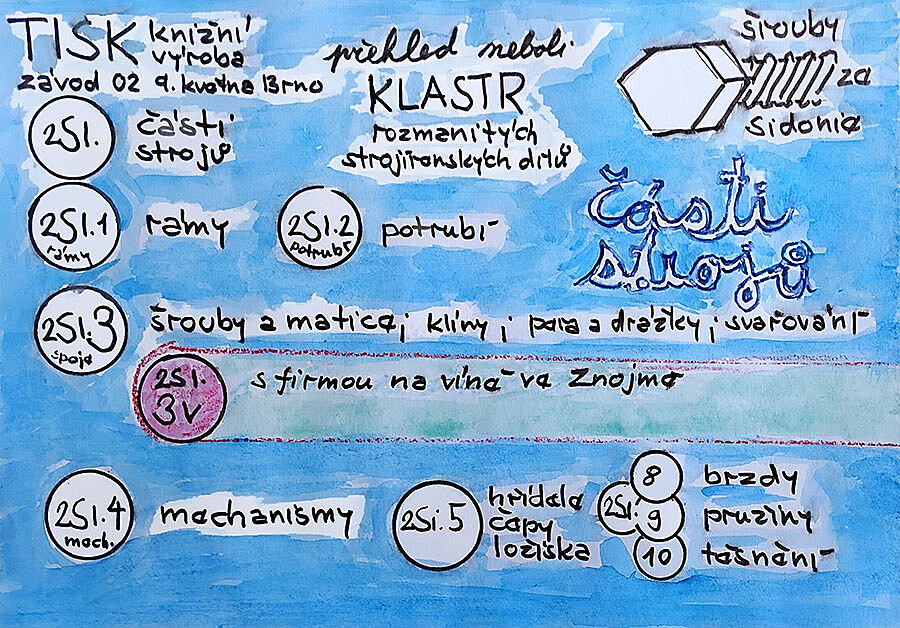 TISK knižní
výroba
závod 02 9. května Brno
přehled neboli
KLASTR
rozmanitých
strojírenských dílů
šrouby
za
Sidonie
2SI.
části
strojů
2SI.1
rámy
rámy
2SI.2
potrubí
potrubí
části
strojů
2SI.3
spoje
šrouby a matice; klíny; pera a drážky; svařování
2SI.
3v
s firmou na vína ve Znojmě
2SI.4
mech.
mechanismy
2Si.5
hřídele
čepy
ložiska
2Si.
8 brzdy
9 pružiny
10 těsnění